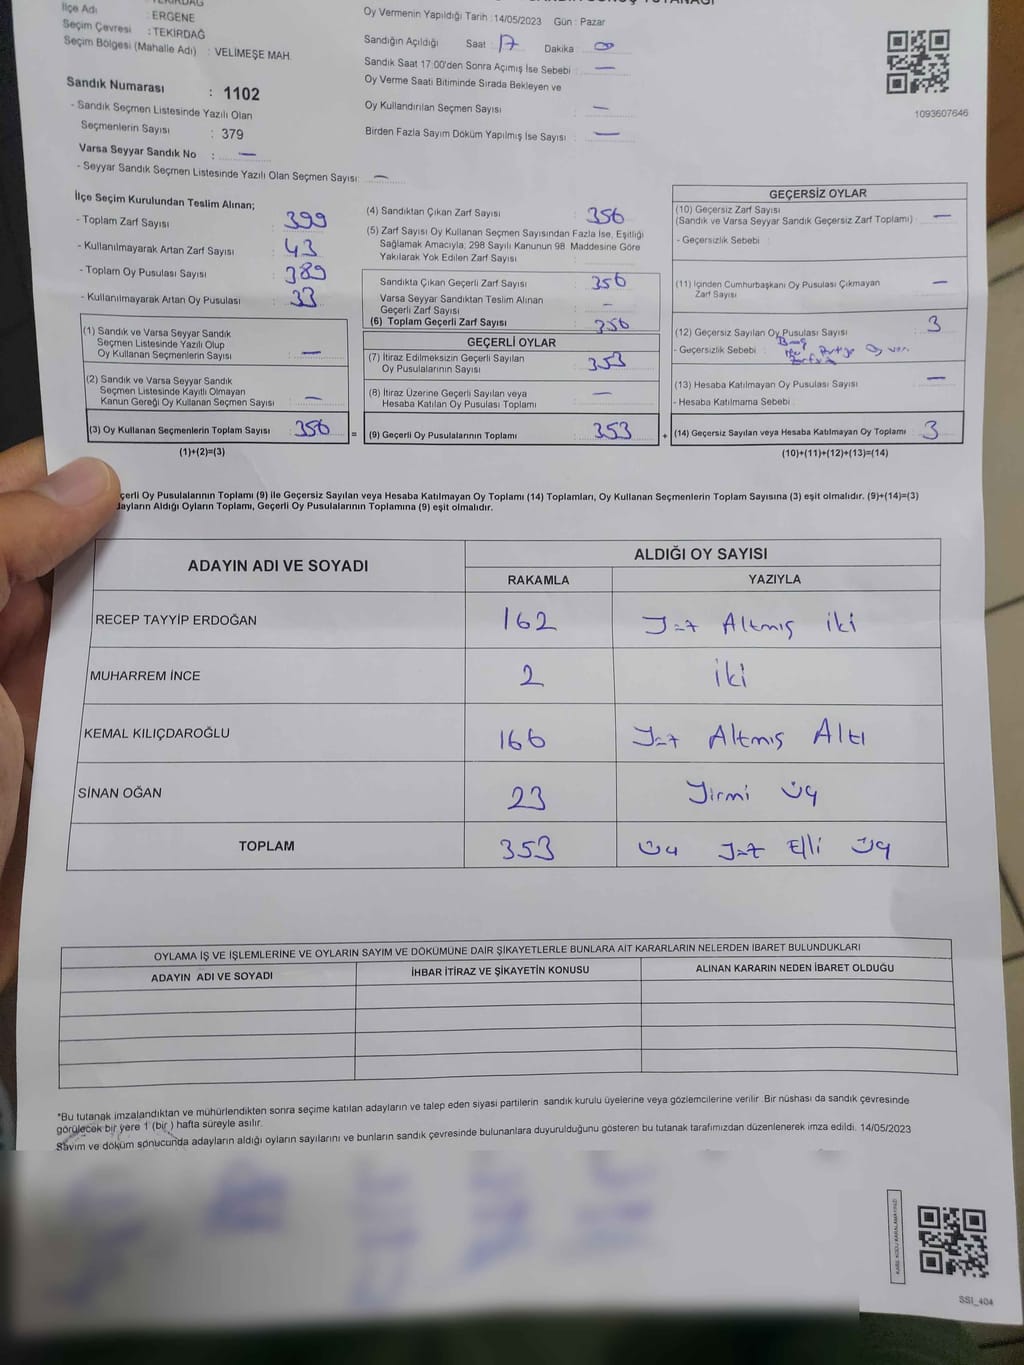 İlçe Adı : ERGENE
Seçim Çevresi : TEKİRDAĞ
Seçim Bölgesi (Mahalle Adı) : VELİMEŞE MAH.
Sandık Numarası : 1102
- Sandık Seçmen Listesinde Yazılı Olan
Seçmenlerin Sayısı : 379
Varsa Seyyar Sandık No : —
- Seyyar Sandık Seçmen Listesinde Yazılı Olan Seçmen Sayısı: —
Oy Vermenin Yapıldığı Tarih :14/05/2023 Gün : Pazar
Sandığın Açıldığı Saat : 17 Dakika : 00
Sandık Saat 17:00'den Sonra Açımış İse Sebebi : —
Oy Verme Saati Bitiminde Sırada Bekleyen ve
Oy Kullandırılan Seçmen Sayısı : —
Birden Fazla Sayım Döküm Yapılmış İse Sayısı : —
1093607646
İlçe Seçim Kurulundan Teslim Alınan;
- Toplam Zarf Sayısı : 399
- Kullanılmayarak Artan Zarf Sayısı : 43
- Toplam Oy Pusulası Sayısı : 389
- Kullanılmayarak Artan Oy Pusulası : 33
(1) Sandık ve Varsa Seyyar Sandık
Seçmen Listesinde Yazılı Olup
Oy Kullanan Seçmenlerin Sayısı : —
(2) Sandık ve Varsa Seyyar Sandık
Seçmen Listesinde Kayıtlı Olmayan
Kanun Gereği Oy Kullanan Seçmen Sayısı : —
(3) Oy Kullanan Seçmenlerin Toplam Sayısı : 356
(1)+(2)=(3)
(4) Sandıktan Çıkan Zarf Sayısı : 356
(5) Zarf Sayısı Oy Kullanan Seçmen Sayısından Fazla İse, Eşitliği
Sağlamak Amacıyla, 298 Sayılı Kanunun 98. Maddesine Göre
Yakılarak Yok Edilen Zarf Sayısı :
Sandıkta Çıkan Geçerli Zarf Sayısı : 356
Varsa Seyyar Sandıktan Teslim Alınan
Geçerli Zarf Sayısı : —
(6) Toplam Geçerli Zarf Sayısı : 356
GEÇERLİ OYLAR
(7) İtiraz Edilmeksizin Geçerli Sayılan
Oy Pusulalarının Sayısı : 353
(8) İtiraz Üzerine Geçerli Sayılan veya
Hesaba Katılan Oy Pusulası Toplamı : —
= (9) Geçerli Oy Pusulalarının Toplamı : 353
GEÇERSİZ OYLAR
(10) Geçersiz Zarf Sayısı
(Sandık ve Varsa Seyyar Sandık Geçersiz Zarf Toplamı) : —
- Geçersizlik Sebebi :
(11) İçinden Cumhurbaşkanı Oy Pusulası Çıkmayan
Zarf Sayısı : —
(12) Geçersiz Sayılan Oy Pusulası Sayısı : 3
- Geçersizlik Sebebi :
(13) Hesaba Katılmayan Oy Pusulası Sayısı : —
- Hesaba Katılmama Sebebi :
+ (14) Geçersiz Sayılan veya Hesaba Katılmayan Oy Toplamı : 3
(10)+(11)+(12)+(13)=(14)
çerli Oy Pusulalarının Toplamı (9) ile Geçersiz Sayılan veya Hesaba Katılmayan Oy Toplamı (14) Toplamları, Oy Kullanan Seçmenlerin Toplam Sayısına (3) eşit olmalıdır. (9)+(14)=(3)
dayların Aldığı Oyların Toplamı, Geçerli Oy Pusulalarının Toplamına (9) eşit olmalıdır.
ADAYIN ADI VE SOYADI
ALDIĞI OY SAYISI
RAKAMLA YAZIYLA
RECEP TAYYİP ERDOĞAN 162 Yüz Altmış iki
MUHARREM İNCE 2 iki
KEMAL KILIÇDAROĞLU 166 Yüz Altmış Altı
SİNAN OĞAN 23 Yirmi üç
TOPLAM 353 üç Yüz Elli üç
OYLAMA İŞ VE İŞLEMLERİNE VE OYLARIN SAYIM VE DÖKÜMÜNE DAİR ŞİKAYETLERLE BUNLARA AİT KARARLARIN NELERDEN İBARET BULUNDUKLARI
ADAYIN ADI VE SOYADI İHBAR İTİRAZ VE ŞİKAYETİN KONUSU ALINAN KARARIN NEDEN İBARET OLDUĞU
*Bu tutanak imzalandıktan ve mühürlendikten sonra seçime katılan adayların ve talep eden siyasi partilerin sandık kurulu üyelerine veya gözlemcilerine verilir. Bir nüshası da sandık çevresinde
görülecek bir yere 1 (bir ) hafta süreyle asılır.
Sayım ve döküm sonucunda adayların aldığı oyların sayılarını ve bunların sandık çevresinde bulunanlara duyurulduğunu gösteren bu tutanak tarafımızdan düzenlenerek imza edildi. 14/05/2023
SSI_404